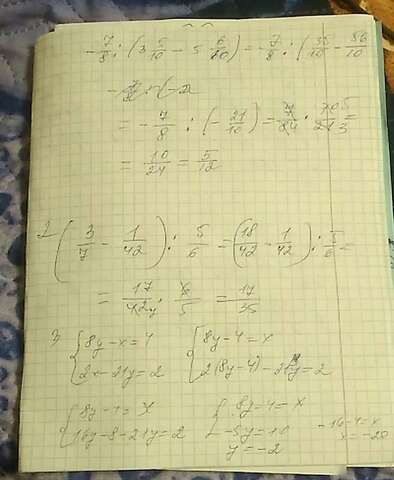 - 7/8 : (3 5/10 - 5 6/10) = - 7/8 : (35/10 - 56/10
= - 7/8 : (- 21/10) = 7/8 · 10/21 =
= 10/24 = 5/12
2 (3/7 - 1/42) : 5/6 = (18/42 - 1/42) : 5/6 =
= 17/42 · 6/5 = 17/35
3 {8y - x = 4 {8y - 4 = x
{2x - 21y = 2 {2(8y - 4) - 21y = 2
{8y - 4 = x {8y - 4 = x
{16y - 8 - 21y = 2 {-5y = 10 -16 - 4 = x
y = -2 x = -20